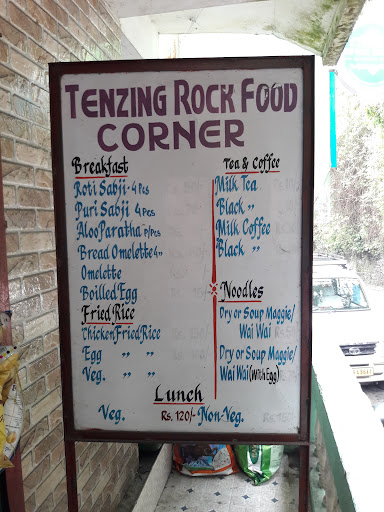 TENZING ROCK FOOD
CORNER
Breakfast
Roti Sabji - 4 Pcs
Puri Sabji 4 Pcs
Aloo Paratha P/Pcs
Bread Omelette 4 "
Omelette
Boilled Egg
Fried Rice
Chicken Fried Rice
Egg " "
Veg. " "
Tea & Coffee
Milk Tea
Black "
Milk Coffee
Black "
Noodles
Dry or Soup Maggie/
Wai Wai
Dry or Soup Maggie/
Wai Wai (With Egg)
Lunch
Veg. Rs. 120/- Non-Veg.